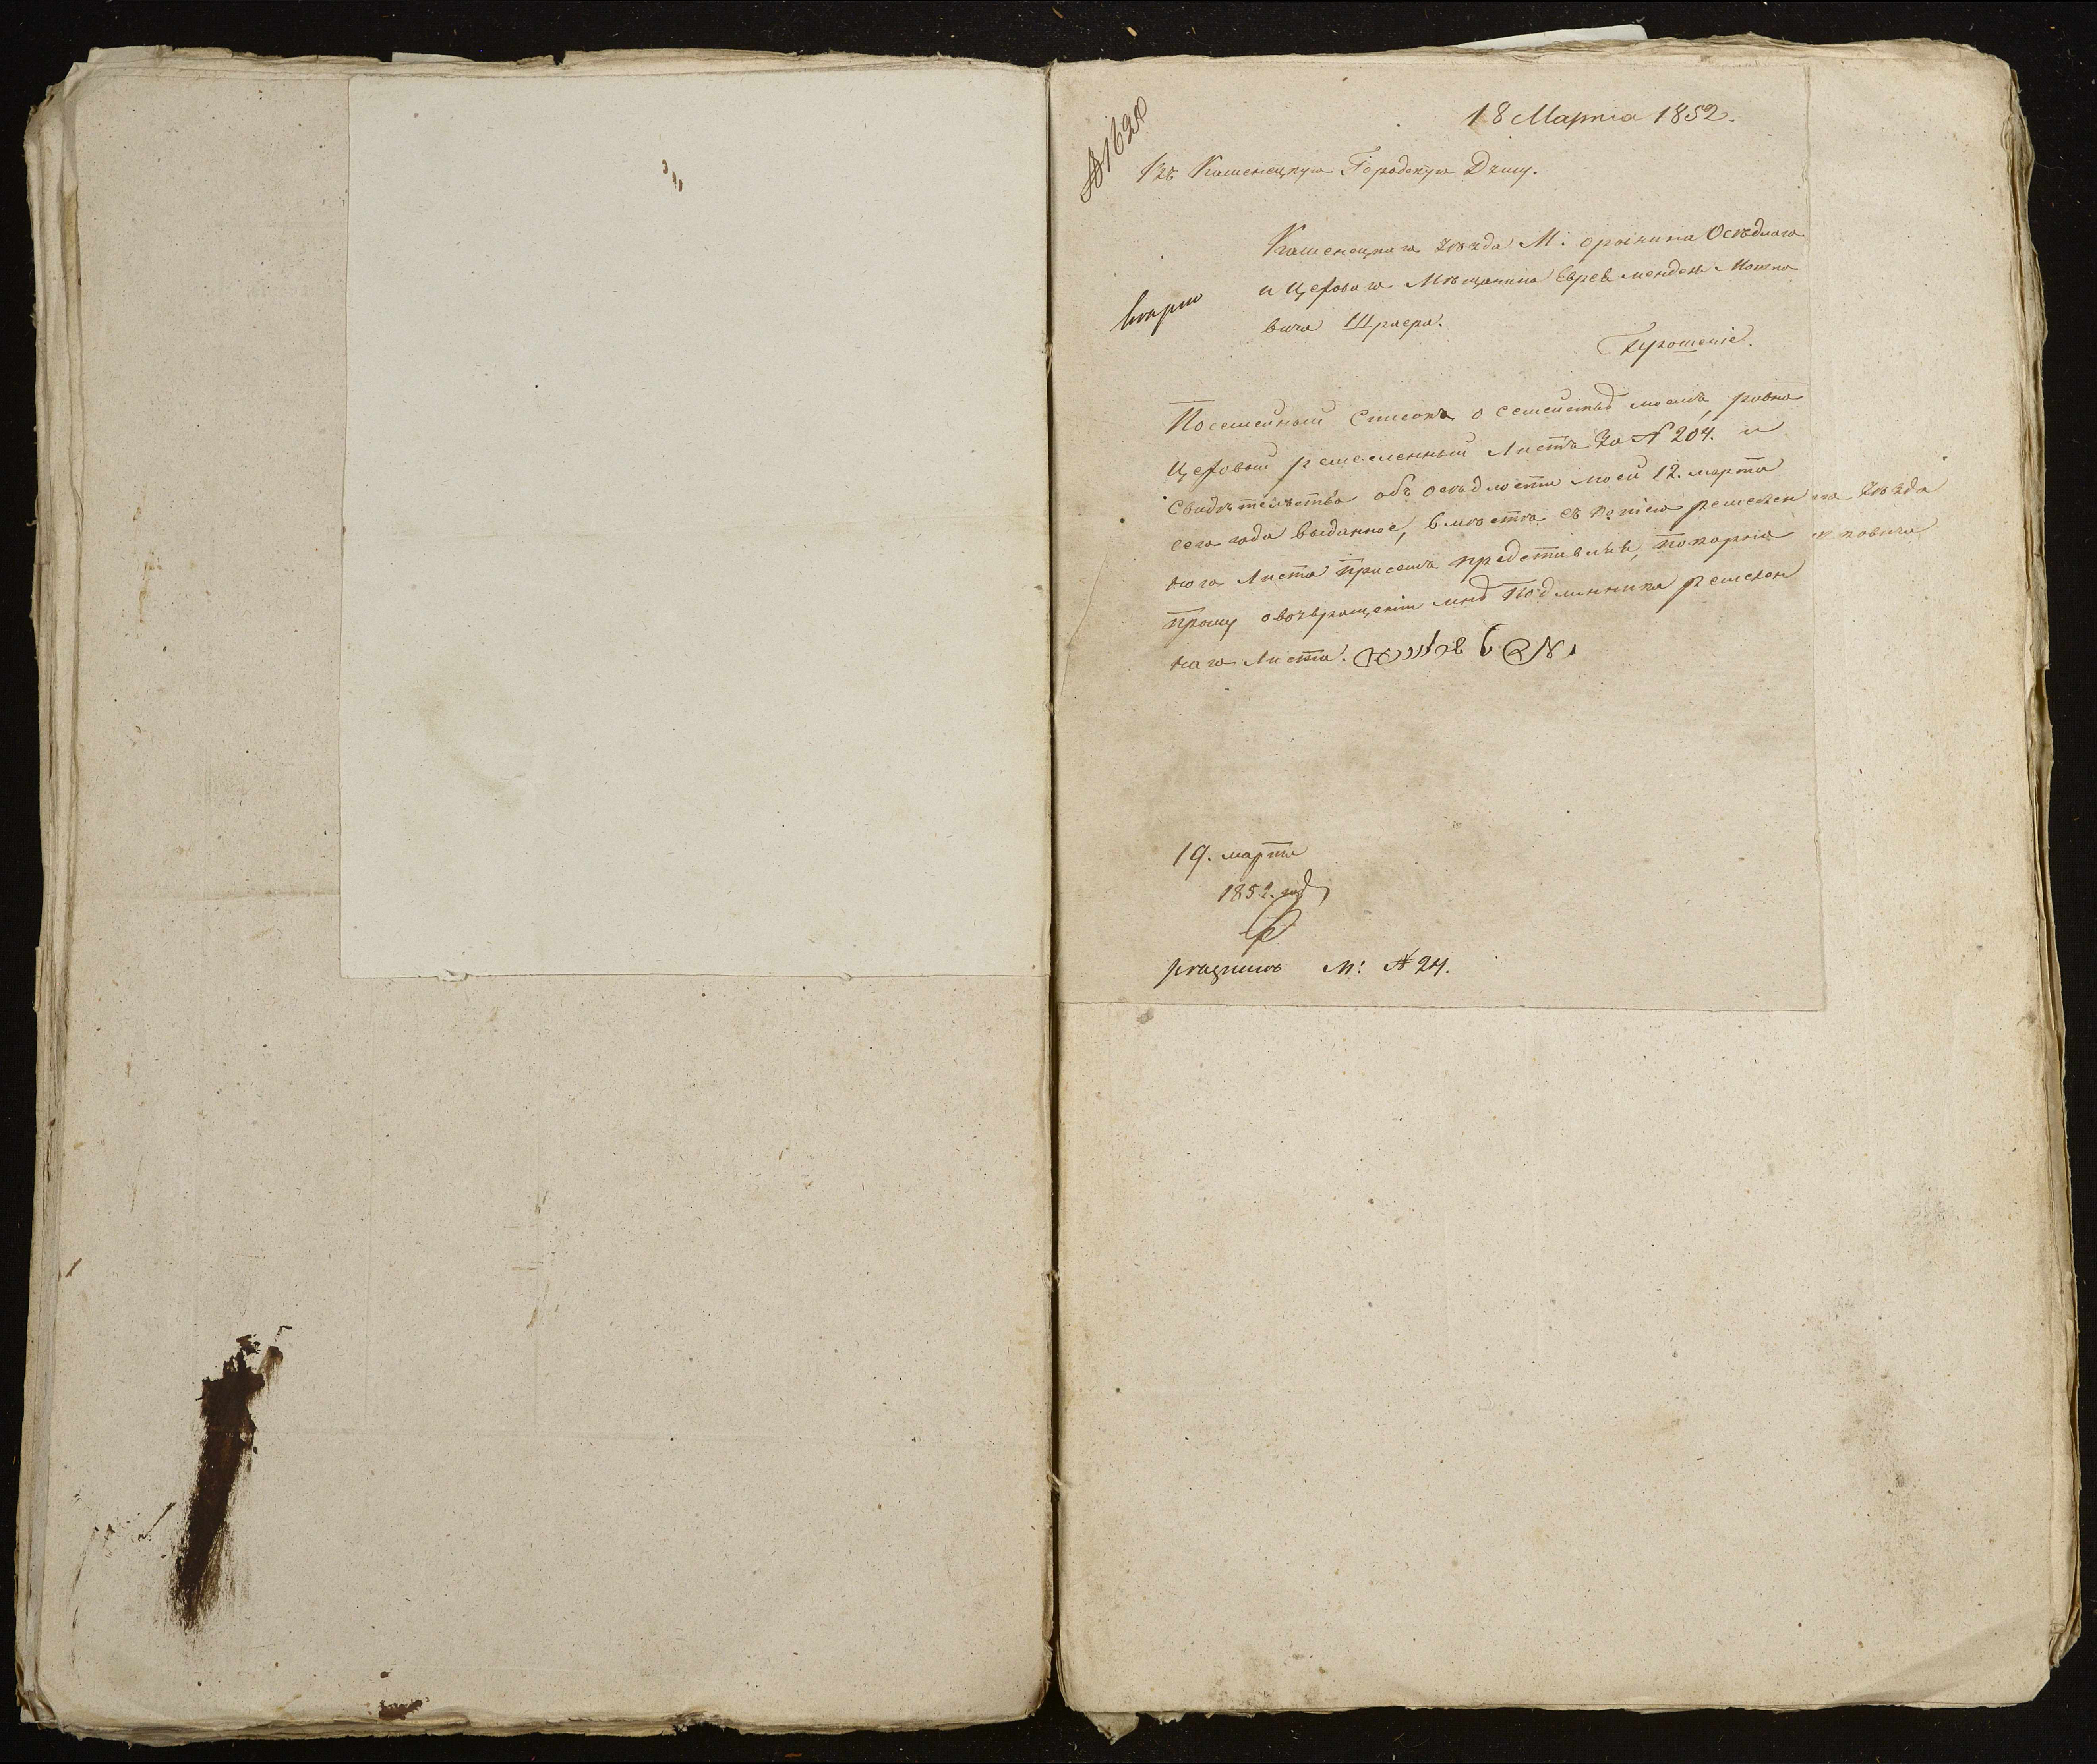 № 1620
18 Марта 1852.
Въ Каменецкую Городскую Думу.
Каменецкаго уѣзда М: Орынина Осѣдлаго
и Цеховаго Мѣщанина Еврея Менделя Мошко
вича Шраера.
Прошеніе.
Посемейный Списокъ о семействѣ моемъ, равно
Цеховый ремесленный Листъ за № 204. и
Свидѣтельство объ осѣдлости моей 12. марта
сего года выданное, вмѣстѣ съ копіею ремеслен
наго Листа присемъ представляя, покорно
прошу овозвращеніи мнѣ Подлинника ремеслен
наго Листа.
уѣзда
ковича
19. марта
1852. года
М: № 24.